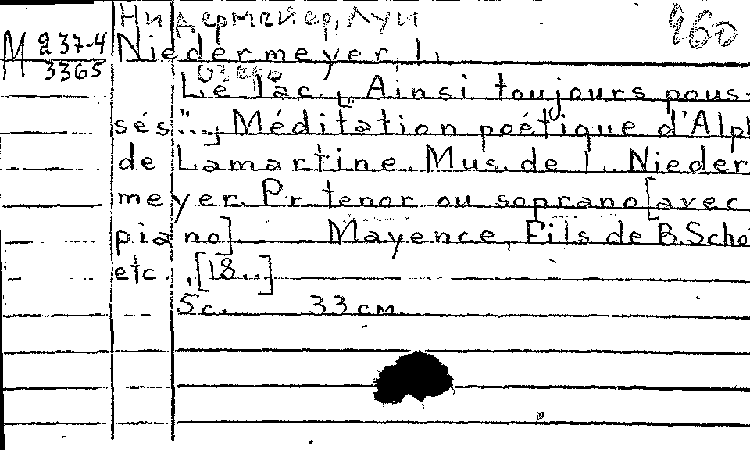 Нидермейер, Луи
960
М 237-4
3365
Niedermeyer, L.
Озеро
Le lac. „Ainsi toujours pous-
sés"... Méditation poétique d'Alph
de Lamartine. Mus. de L. Nieder
meyer. Pr. tenor ou soprano [avec
piano]. Mayence, Fils de B. Scho
etc., [18..]
5 с. 33 см.